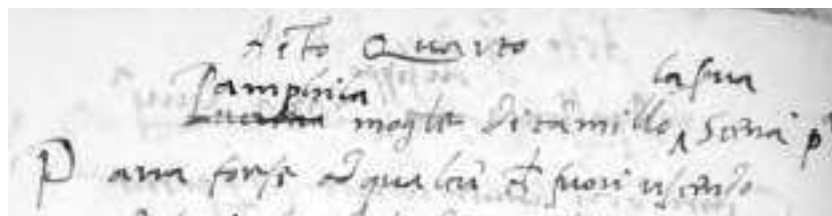 Atto Quarto
Pamphila la sua
Lucretia mogle di Camillo Scena pª
Parra forse ad qualcũ che fuori uscendo